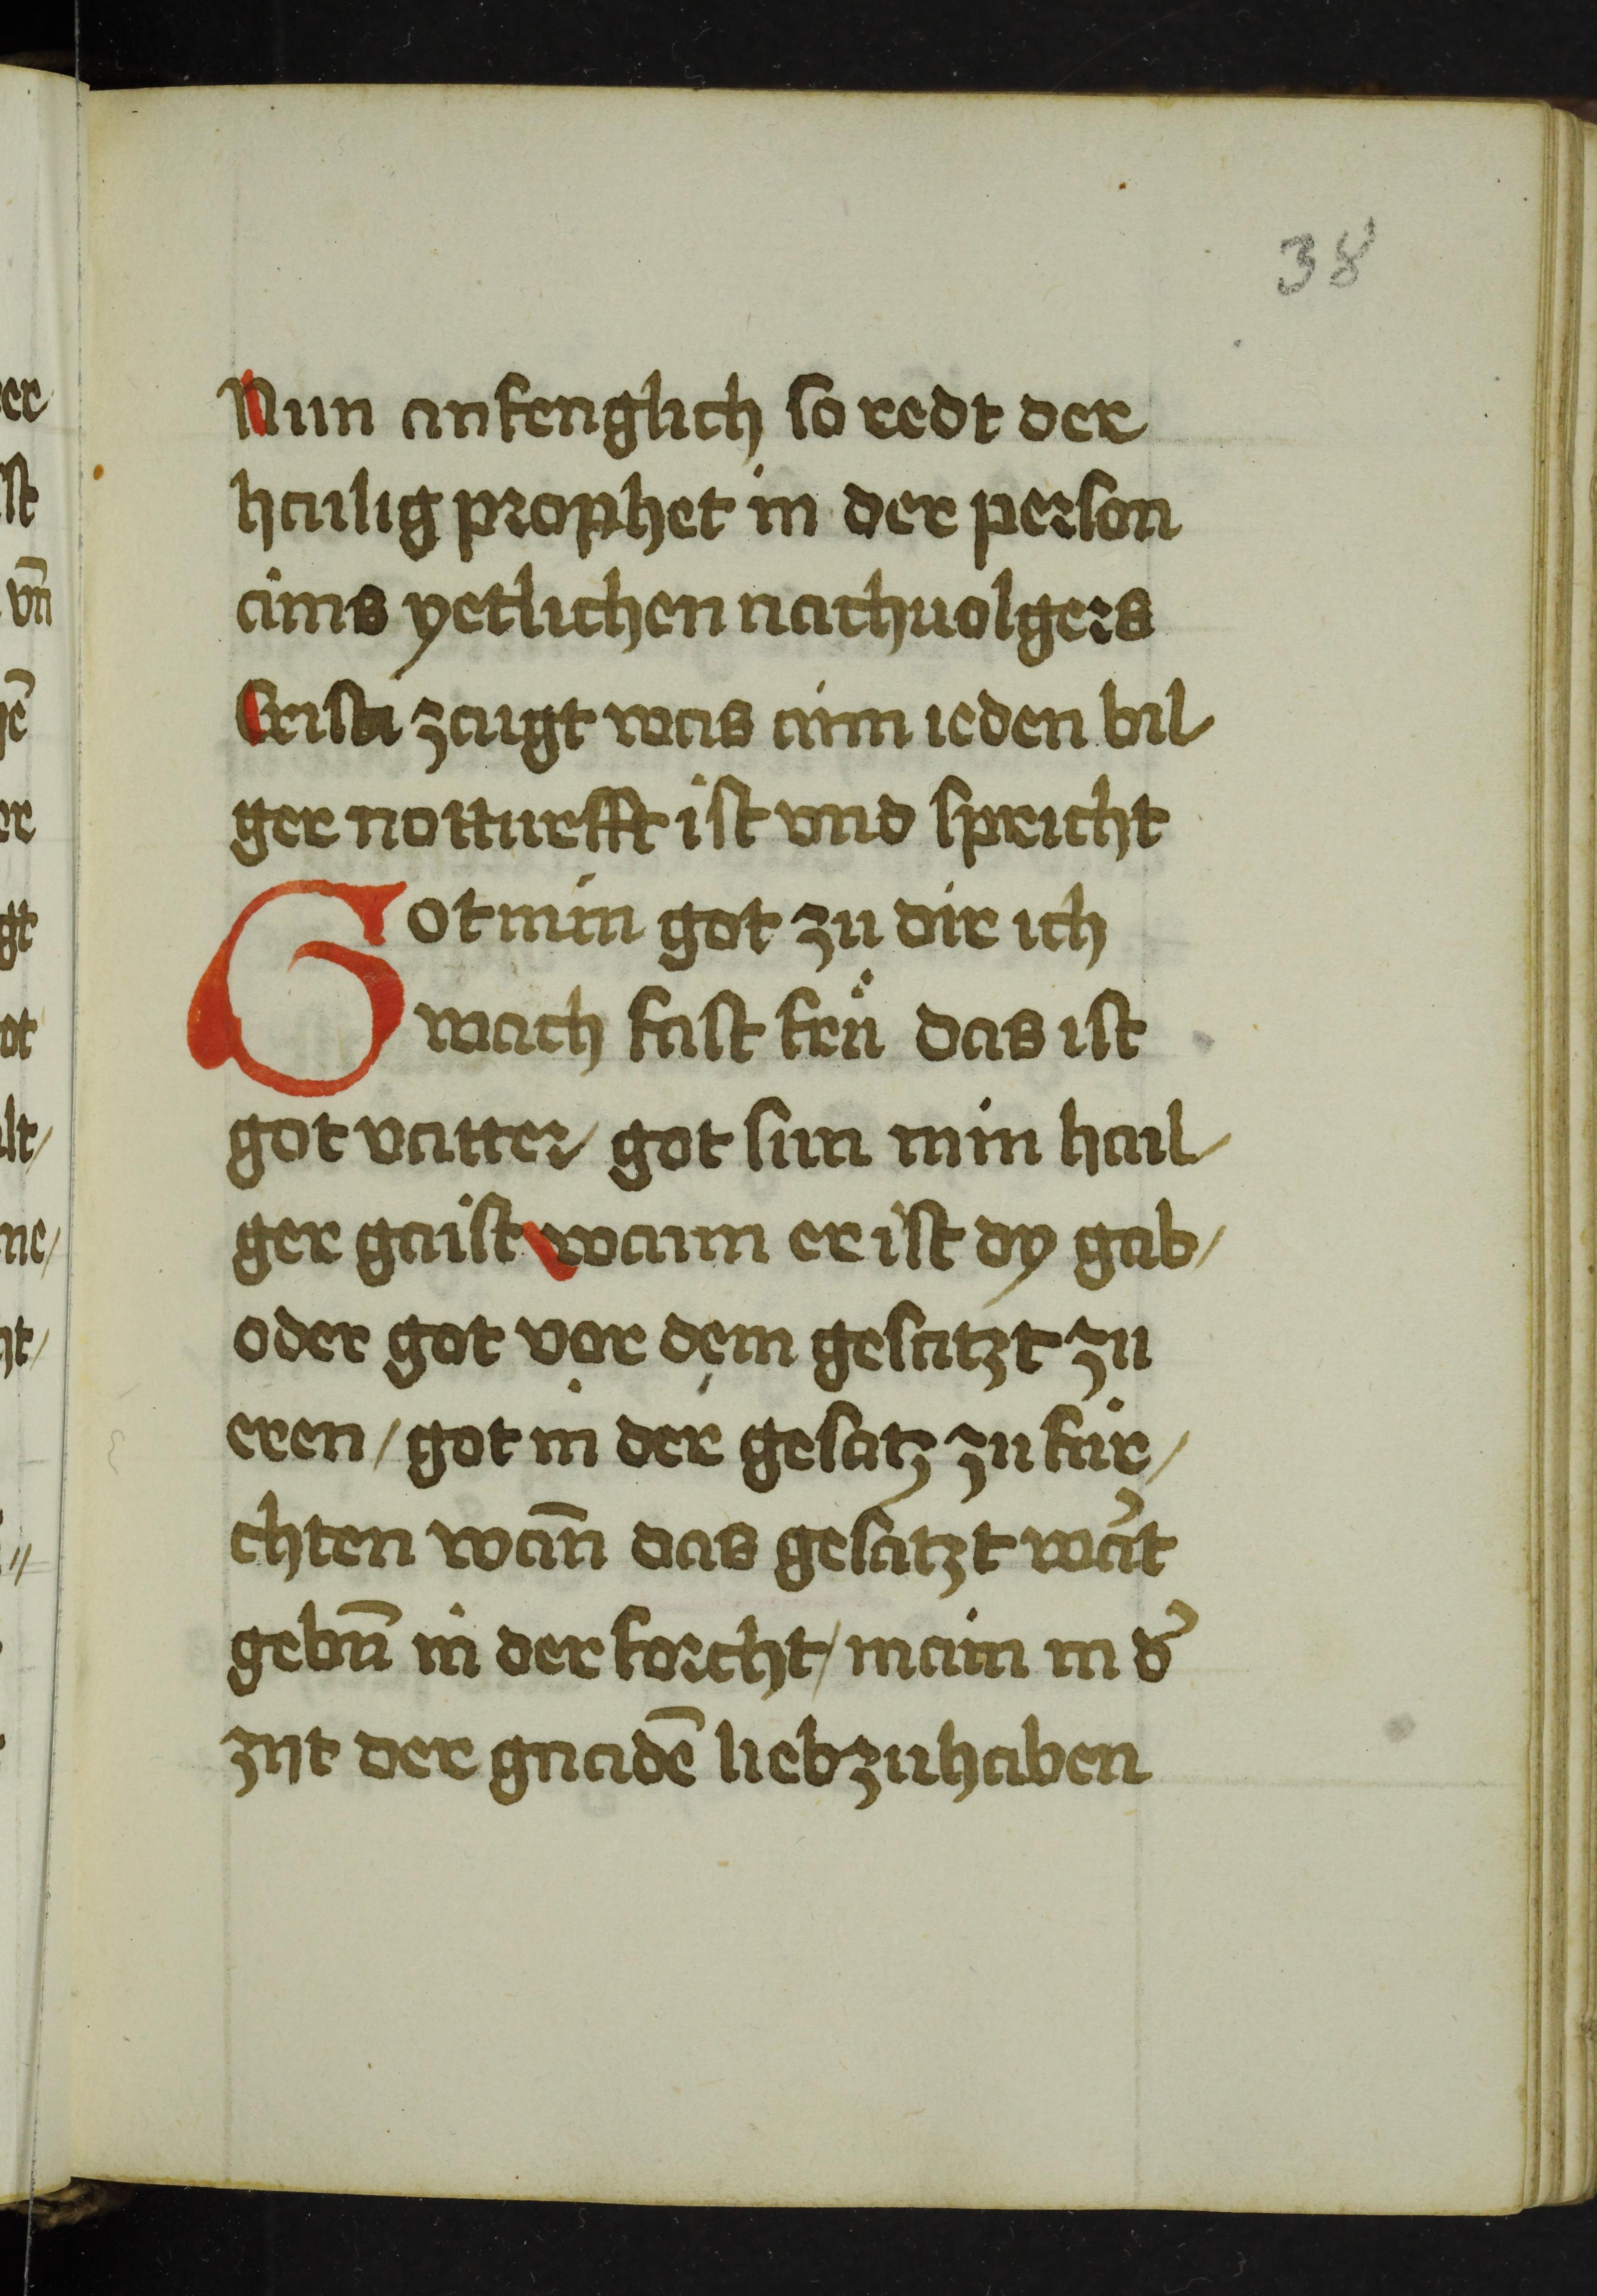 38
Nun anfenglich so redt der
hailig prophet in der person
ains yetlichen nachuolgers
Cristi zaigt was aim ieden bil
ger notturfft ist vnd spricht
Got min got zu dir ich
wach fast frü das ist
got vatter/ got sun min hail
ger gaist wann er ist dy gab/
oder got vor dem gesatzt zu
eren/ got in der gesatz zu fúr/
chten wañ das gesatzt wa͛t
gebñ in der forcht/ main in d͛
zijt der gnadē lieb zu haben